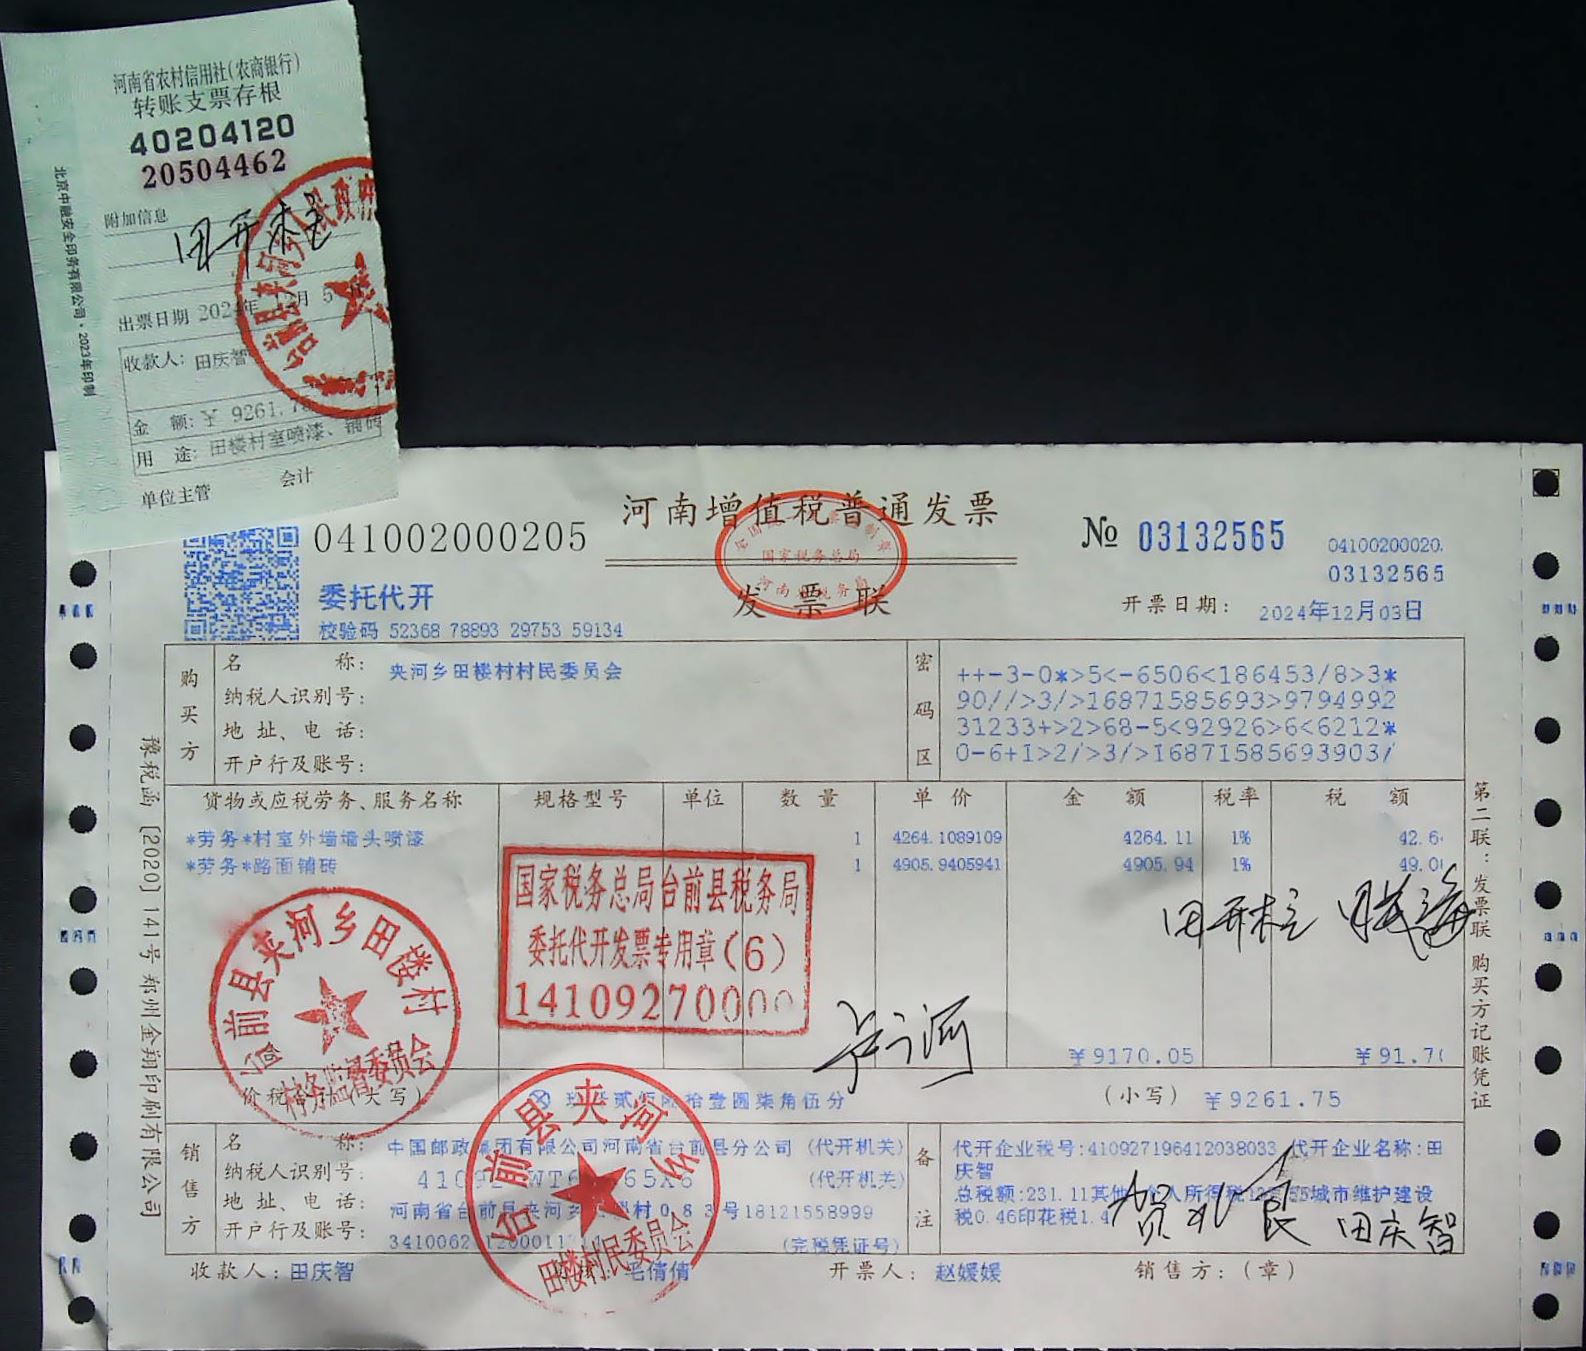 河南省农村信用社(农商银行)
转账支票存根
40204120
20504462
附加信息
田开柱
出票日期 2024年12月5日
收款人: 田庆智
金 额: ¥ 9261.75
用 途: 田楼村室喷漆、铺砖
单位主管 会计
北京中融安全印务有限公司·2023年印制
台前县夹河乡人民政府
041002000205
河南增值税普通发票
发票联
国家税务总局
№ 03132565
04100200020
03132565
委托代开
校验码 52368 78893 29753 59134
开票日期: 2024年12月03日
购买方
名 称: 夹河乡田楼村村民委员会
纳税人识别号:
地址、电话:
开户行及账号:
密码区
++-3-0*>5<-6506<186453/8>3*
90//>3/>16871585693>9794992
31233+>2>68-5<92926>6<6212*
0-6+1>2/>3/>16871585693903/
货物或应税劳务、服务名称 规格型号 单位 数量 单价 金额 税率 税额
*劳务*村室外墙墙头喷漆 1 4264.1089109 4264.11 1% 42.6
*劳务*路面铺砖 1 4905.9405941 4905.94 1% 49.0
国家税务总局台前县税务局
委托代开发票专用章(6)
14109270000
台前县夹河乡田楼村
村务监督委员会
田开柱
¥9170.05 ¥91.7
价税合计(大写) 玖仟贰佰陆拾壹圆柒角伍分 (小写) ¥9261.75
销售方
名 称: 中国邮政集团有限公司河南省台前县分公司 (代开机关)
纳税人识别号: (代开机关)
地址、电话: 河南省台前县夹河乡 楼村083号18121558999
开户行及账号: (完税凭证号)
备注
代开企业税号:410927196412038033 代开企业名称:田
庆智
总税额:231.11其他 个人所得税 城市维护建设
税0.46印花税1.4
田庆智
台前县夹河乡
田楼村民委员会
收款人: 田庆智 毛倩倩 开票人: 赵媛媛 销售方: (章)
豫税函 [2020] 141号 郑州金翔印刷有限公司
第二联: 发票联 购买方记账凭证